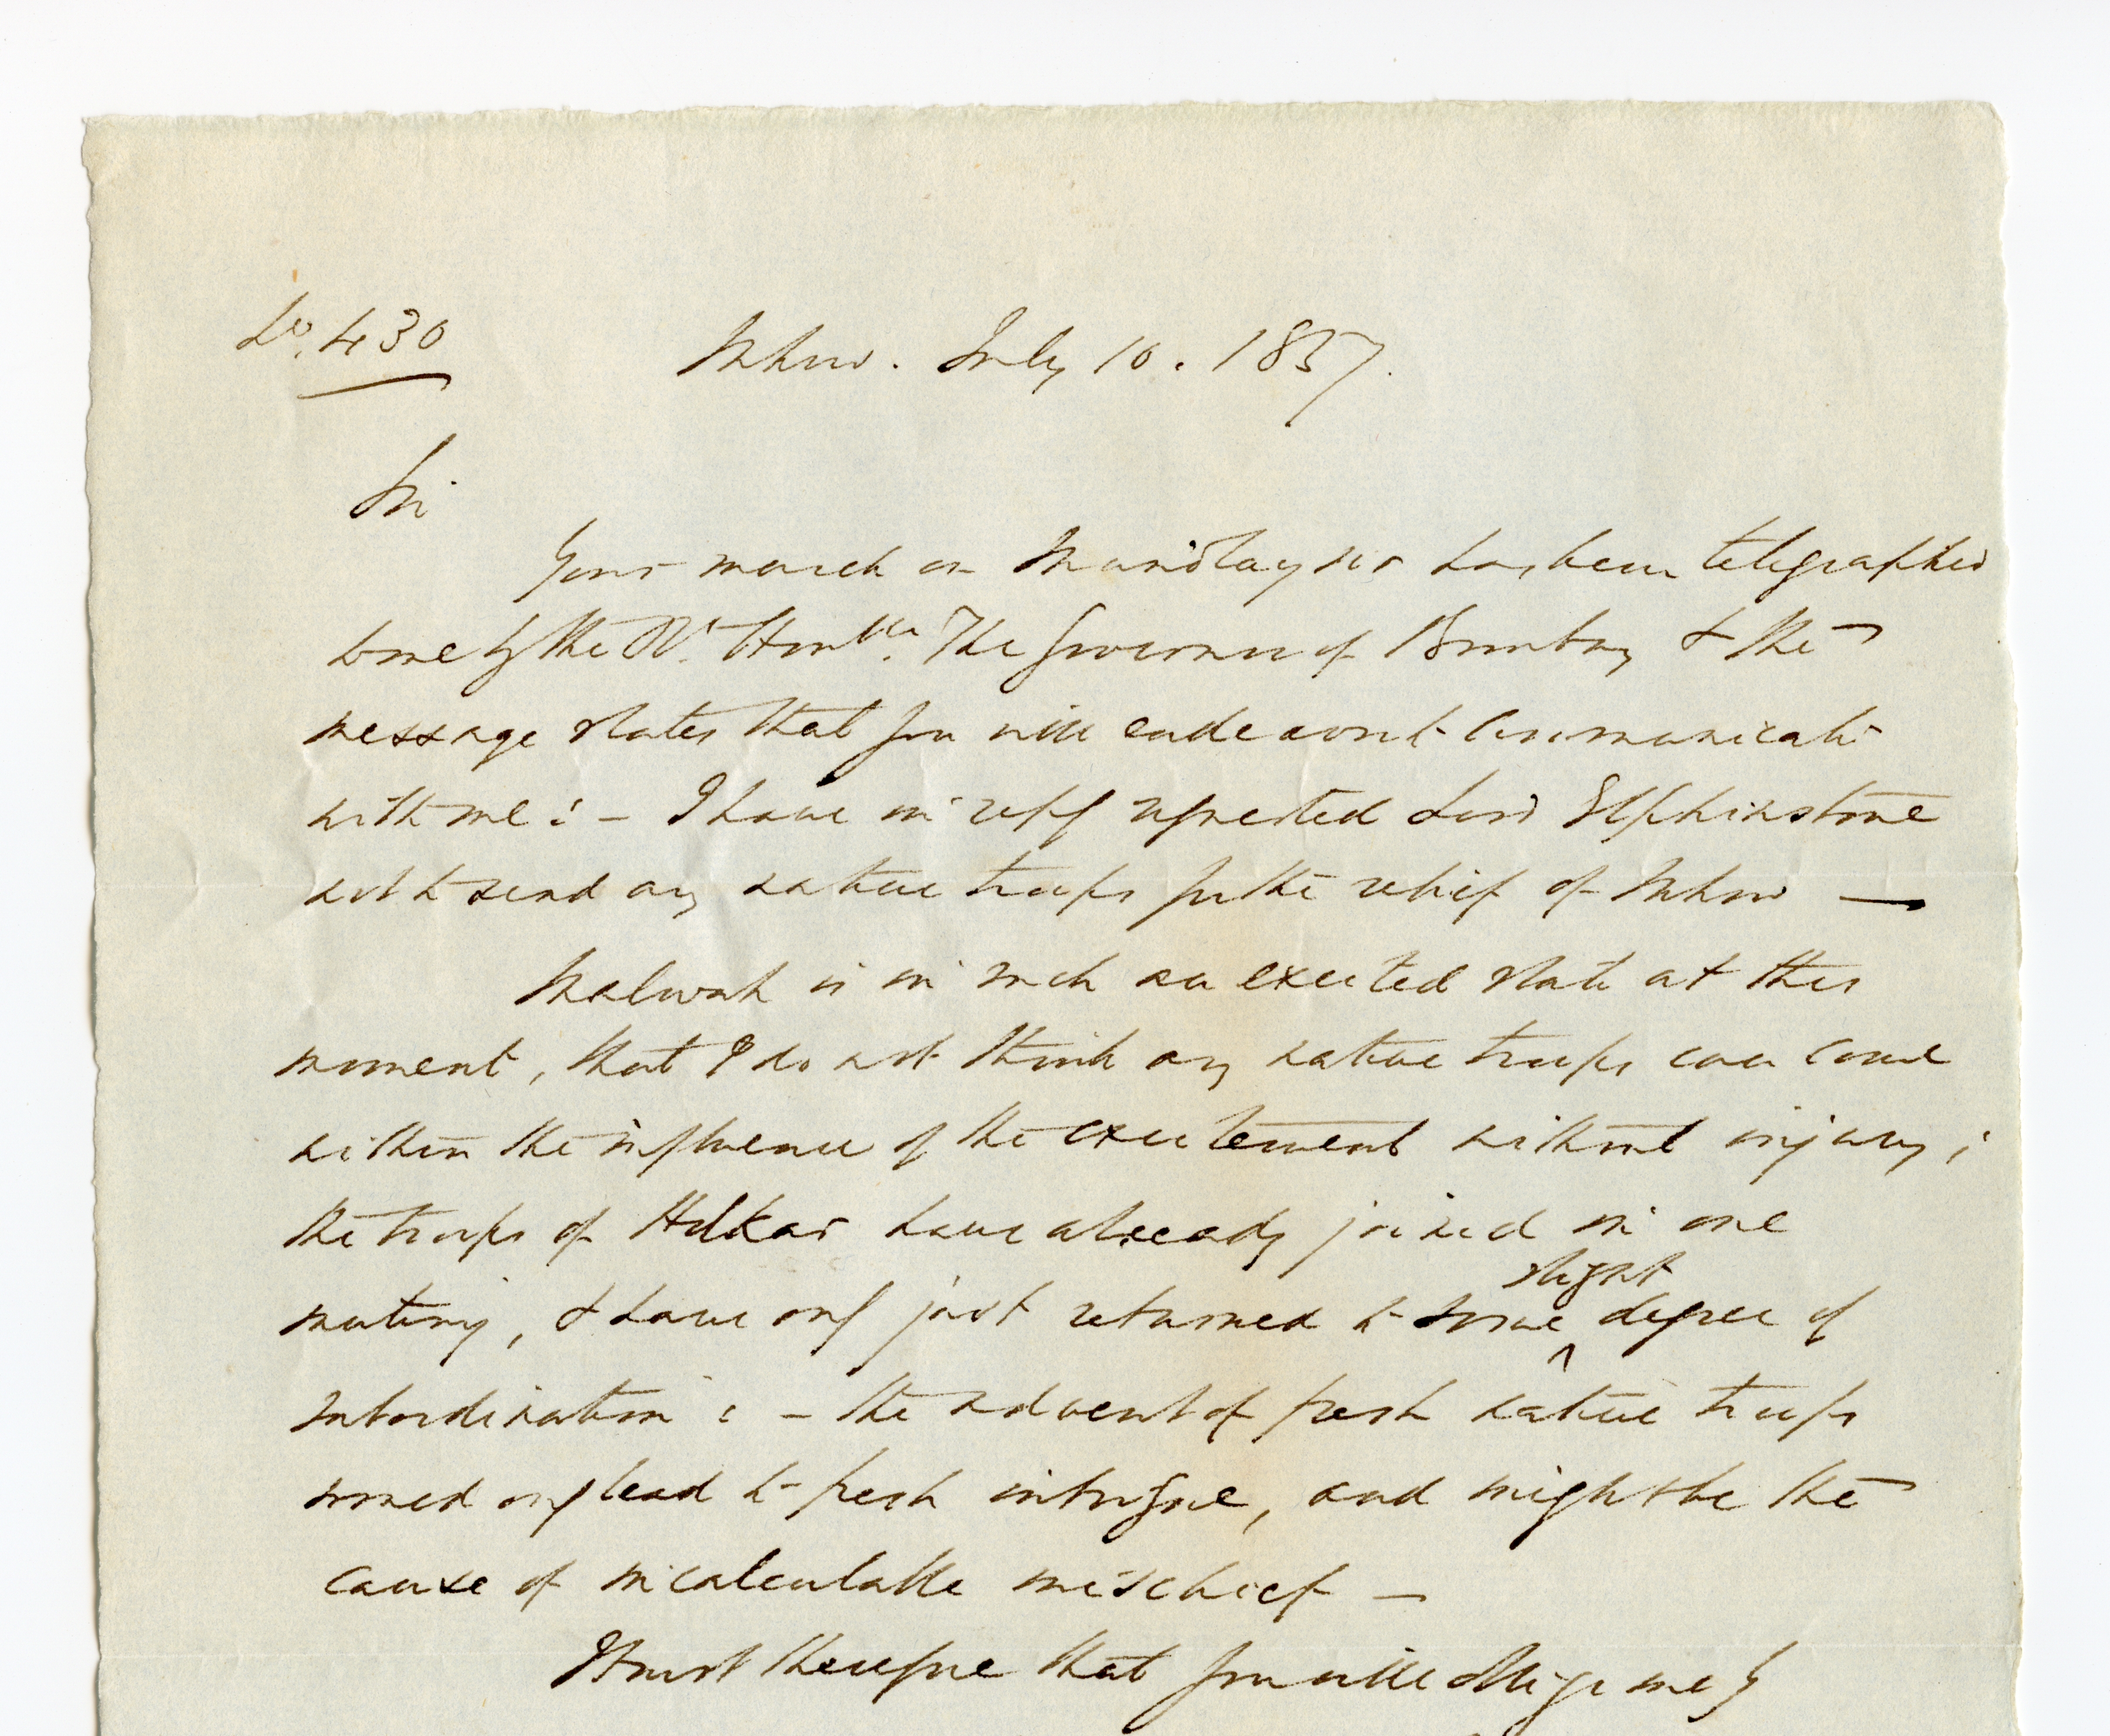 No. 430
Mhow. July 10. 1857.
Sir
Your march on Mundlaysir has been telegraphed
to me by the Rt. Honble. The Governor of Bombay & the
message states that you will endeavour to communicate
with me : – I have in reply requested Lord Elphinstone
not to send any native troops for the relief of Mhow —
Malwah is in such an excited state at this
moment, that I do not think any native troops can come
within the influence of the excitement without injury ;
the troops of Holkar have already joined in one
mutiny, & have only just returned to some slight degree of
subordination : – the advent of fresh native troops
would only lead to fresh intrigue, and might be the
cause of incalculable mischief —
I trust therefore that you will oblige me by